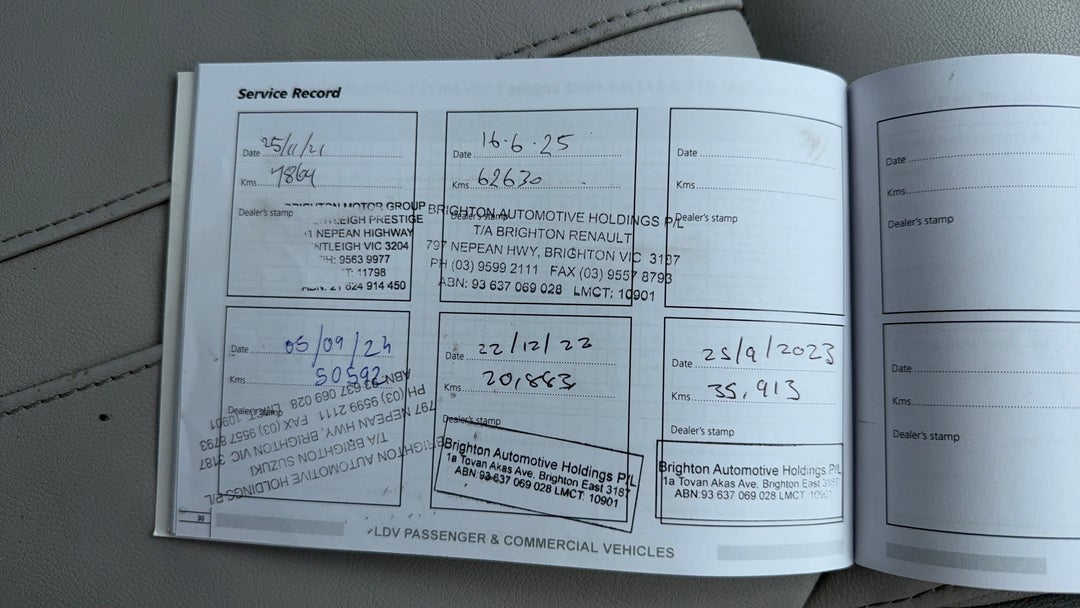 Service Record
Date 25/11/21
Kms 7864
Dealer's stamp
BRIGHTON MOTOR GROUP
PRESTIGE
NEPEAN HIGHWAY
VIC 3204
PH: 9563 9977
T: 11798
ABN: 21 624 914 450
Date 16.6.25
Kms 62630
Dealer's stamp
BRIGHTON AUTOMOTIVE HOLDINGS P/L
T/A BRIGHTON RENAULT
797 NEPEAN HWY, BRIGHTON VIC 3187
PH (03) 9599 2111 FAX (03) 9557 8793
ABN: 93 637 069 028 LMCT: 10901
Date
Kms
Dealer's stamp
Date 05/09/24
Kms 50592
Dealer's stamp
BRIGHTON AUTOMOTIVE HOLDINGS P/L
T/A BRIGHTON SUZUKI
797 NEPEAN HWY, BRIGHTON VIC 3187
PH (03) 9599 2111 FAX (03) 9557 8793
ABN 93 637 069 028 LMCT: 10901
Date 22/12/22
Kms 20,883
Dealer's stamp
Brighton Automotive Holdings P/L
1a Tovan Akas Ave, Brighton East 3187
ABN:93 637 069 028 LMCT: 10901
Date 25/9/2023
Kms 35,913
Dealer's stamp
Brighton Automotive Holdings P/L
1a Tovan Akas Ave, Brighton East 3187
ABN:93 637 069 028 LMCT
30
LDV PASSENGER & COMMERCIAL VEHICLES
Date
Kms
Dealer's stamp
Date
Kms
Dealer's stamp